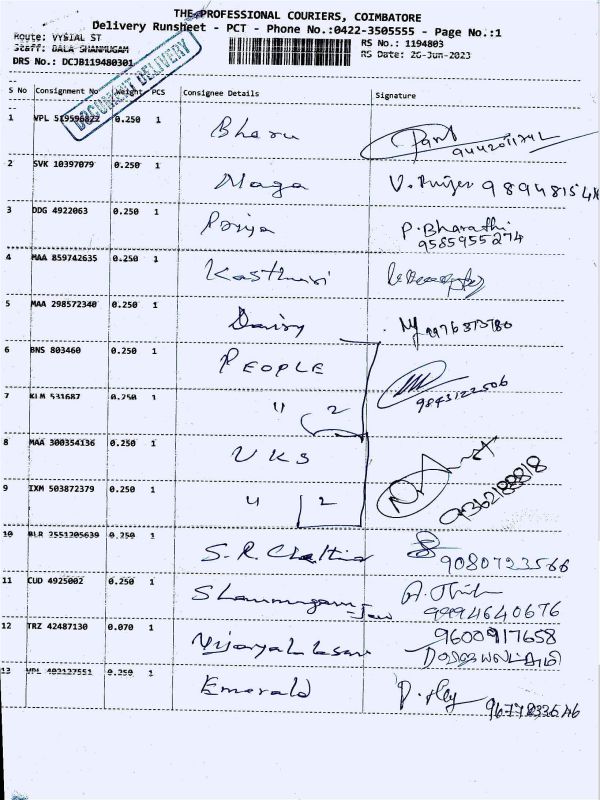 THE PROFESSIONAL COURIERS, COIMBATORE
Delivery Runsheet - PCT - Phone No.:0422-3505555 - Page No.:1
Route: VYSIAL ST
RS No.: 1194803
Staff: BALA SHANMUGAM
RS Date: 26-Jun-2023
DRS No.: DCJB119480301
DOCUMENT DELIVERY
S No Consignment No Weight PCS Consignee Details Signature
1 VPL 519596822 0.250 1 Bhanu
2 SVK 10397079 0.250 1 Naga
3 DDG 4922063 0.250 1 Priya P. Bharathi
9585955274
4 MAA 859742635 0.250 1 Kasthuri
5 MAA 298572340 0.250 1 Daisy
6 BNS 803460 0.250 1 PEOPLE
9843122506
7 KLM 531687 0.250 1 " 2
8 MAA 300354136 0.250 1 UKS
9362188818
9 IXM 503872379 0.250 1 " 2
10 BLR 2551205639 0.250 1 S.R. Chettiar
9080723566
11 CUD 4925002 0.250 1 Shanmugam
9994640676
12 TRZ 42487130 0.070 1 9600917658
13 VPL 402127551 0.250 1 Emerald